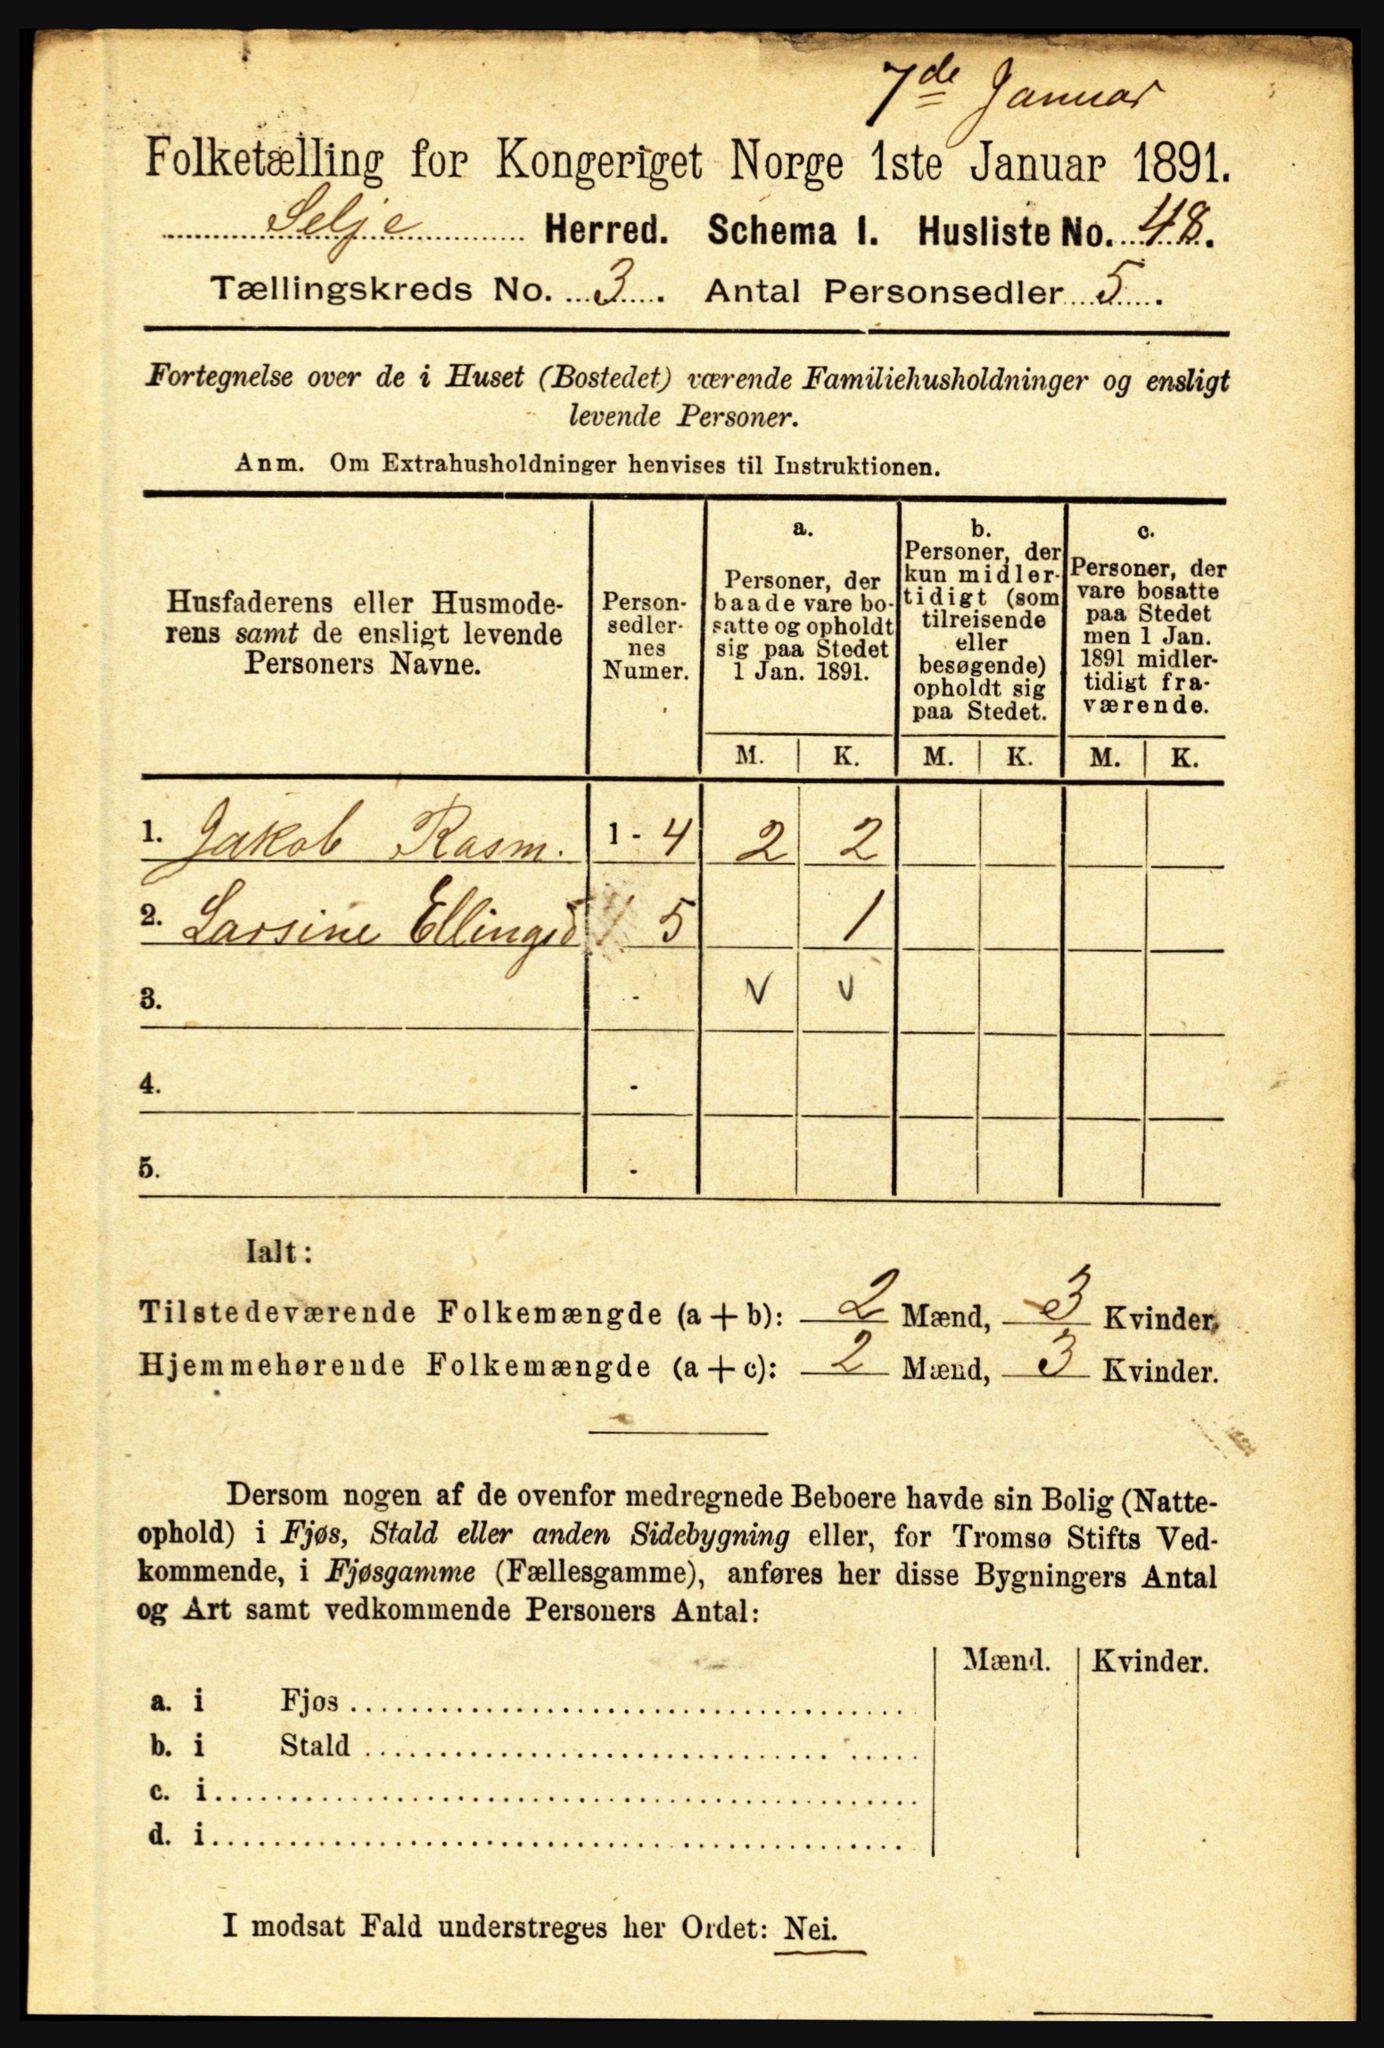 7de Januar
Folketælling for Kongeriget Norge 1ste Januar 1891.
Selje Herred. Schema I. Husliste No. 48.
Tællingskreds No. 3. Antal Personsedler 5.
Fortegnelse over de i Huset (Bostedet) værende Familiehusholdninger og ensligt
levende Personer.
Anm. Om Extrahusholdninger henvises til Instruktionen.
Husfaderens eller Husmode-
rens samt de ensligt levende
Personers Navne.
Person-
sedler-
nes
Numer.
a.
Personer, der
baade vare bo-
satte og opholdt
sig paa Stedet
1 Jan. 1891.
b.
Personer, der
kun midler-
tidigt (som
tilreisende
eller
besøgende)
opholdt sig
paa Stedet.
c.
Personer, der
vare bosatte
paa Stedet
men 1 Jan.
1891 midler-
tidigt fra-
værende.
M. K. M. K. M. K.
1. Jakob Rasm. 1 - 4 2 2
2. Larsine Ellingsd 5 1
3. - v v
4. -
5. -
Ialt:
Tilstedeværende Folkemængde (a + b): 2 Mænd, 3 Kvinder.
Hjemmehørende Folkemængde (a + c): 2 Mænd, 3 Kvinder.
Dersom nogen af de ovenfor medregnede Beboere havde sin Bolig (Natte-
ophold) i Fjøs, Stald eller anden Sidebygning eller, for Tromsø Stifts Ved-
kommende, i Fjøsgamme (Fællesgamme), anføres her disse Bygningers Antal
og Art samt vedkommende Personers Antal:
Mænd. Kvinder.
a. i Fjøs
b. i Stald
c. i
d. i
I modsat Fald understreges her Ordet: Nei.